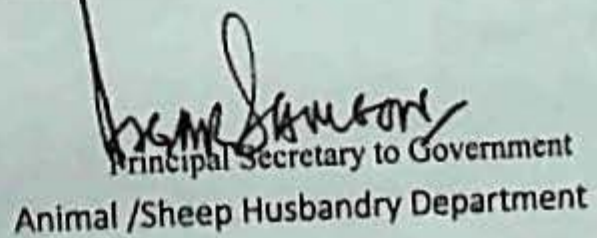 Principal Secretary to Government
Animal /Sheep Husbandry Department